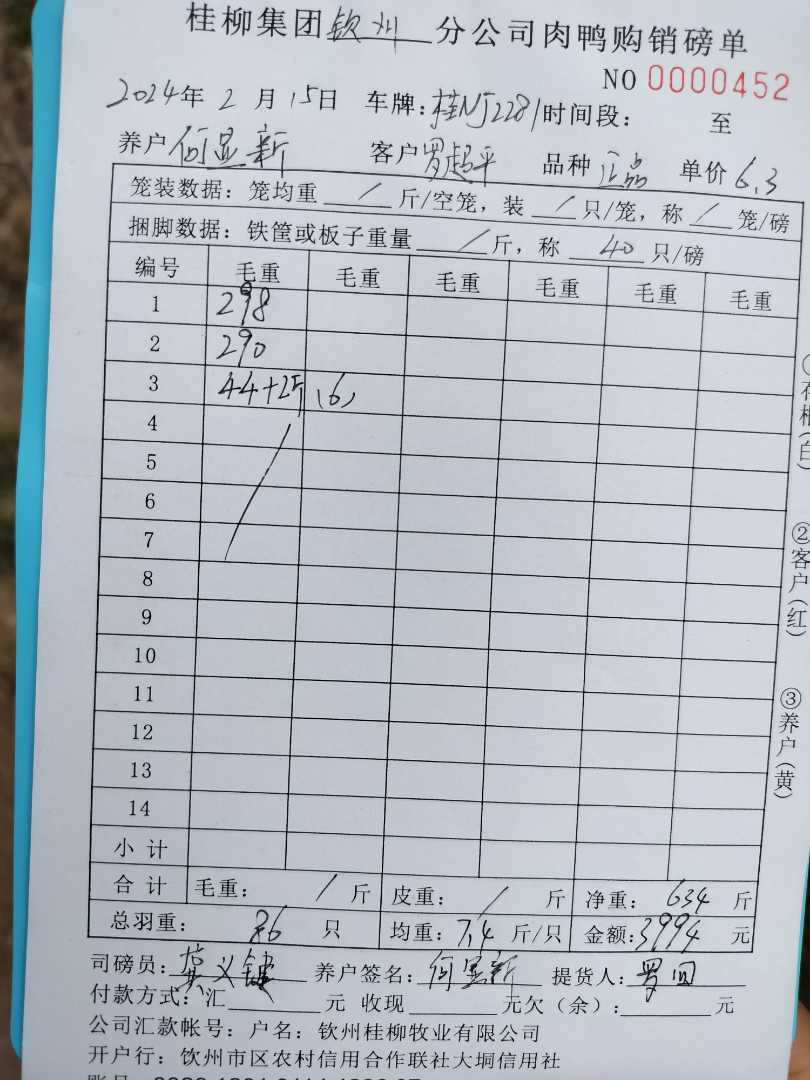 桂柳集团钦州分公司肉鸭购销磅单
NO 0000452
2024年 2 月 15日 车牌:桂NJ2281 时间段: 至
养户 何显新 客户 罗超平 品种 正品 单价 6.3
笼装数据:笼均重 / 斤/空笼,装 / 只/笼,称 / 笼/磅
捆脚数据:铁筐或板子重量 / 斤,称 40 只/磅
编号 毛重 毛重 毛重 毛重 毛重 毛重
1 298
2 290
3 44+2斤 (6)
4
5
6
7
8
9
10
11
12
13
14
小 计
合 计 毛重: / 斤 皮重: / 斤 净重: 634 斤
总羽重: 86 只 均重:7.4 斤/只 金额:3994 元
司磅员: 义键 养户签名: 何显新 提货人: 罗
付款方式:汇 元 收现 元欠(余): 元
公司汇款帐号:户名:钦州桂柳牧业有限公司
开户行:饮州市区农村信用合作联社大垌信用社
②客户(红)
③养户(黄)